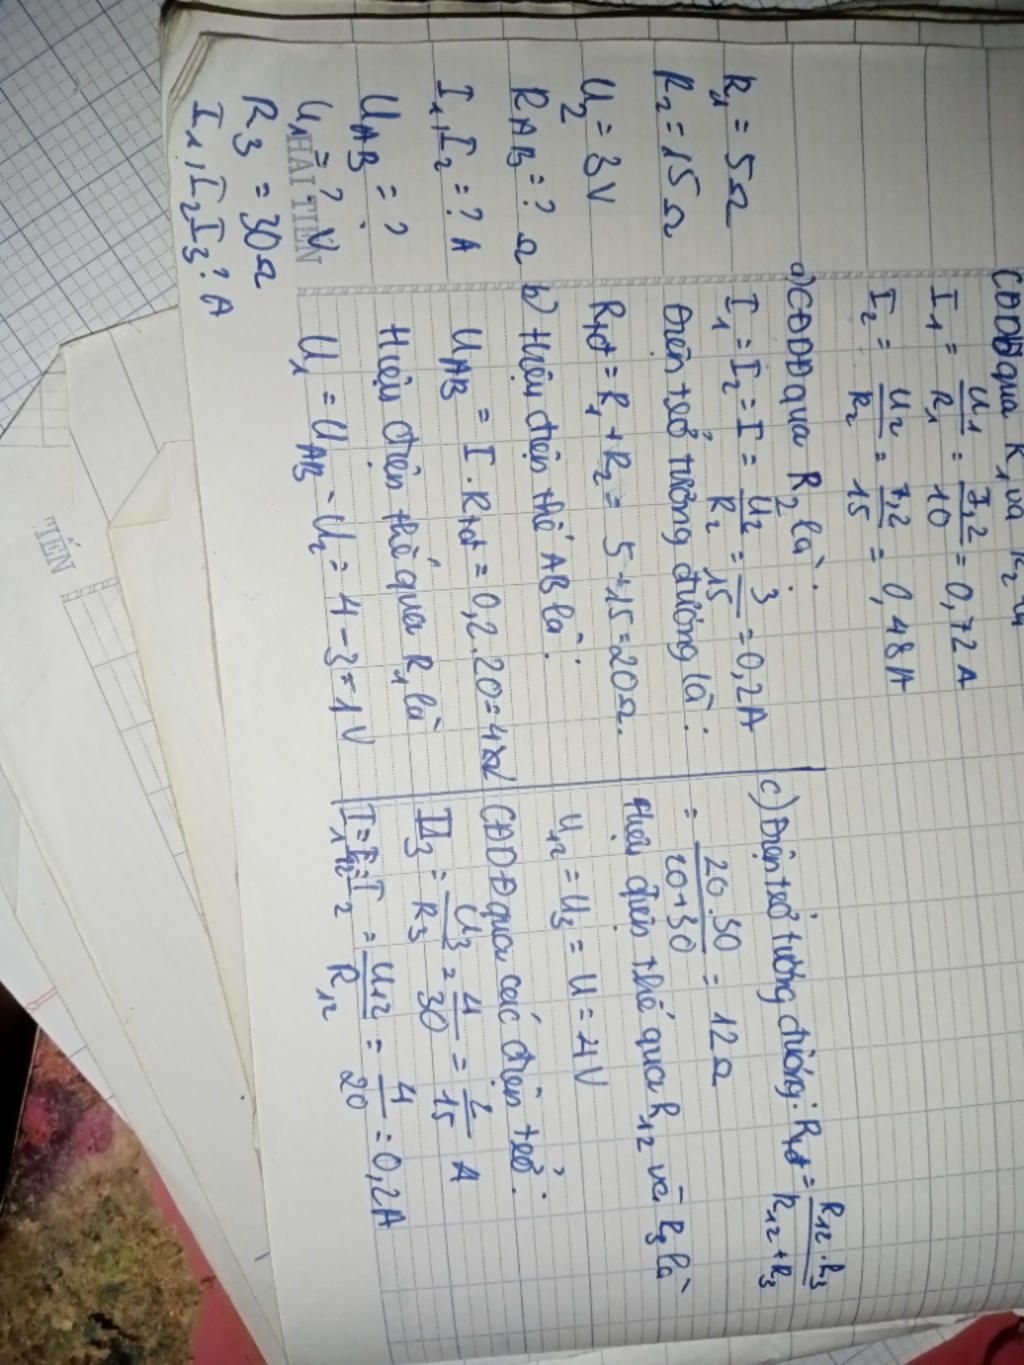 CĐDĐ qua R1 và R2 là
I1 = U1/R1 = 7,2/10 = 0,72A
I2 = U2/R2 = 7,2/15 = 0,48A
R1 = 5Ω
R2 = 15Ω
U2 = 3V
RAB = ? Ω
I1, I2 = ? A
UAB = ?
U1 = ? V
R3 = 30Ω
I1, I2 I3? A
a) CĐDĐ qua R2 là:
I1 = I2 = I = U2/R2 = 3/15 = 0,2A
Điện trở tương đương là:
Rtđ = R1 + R2 = 5 + 15 = 20Ω.
b) Hiệu điện thế AB là:
UAB = I.Rtđ = 0,2.20 = 4V
Hiệu điện thế qua R1 là
U1 = UAB - U2 = 4 - 3 = 1V
c) Điện trở tương đương: Rtđ = R12.R3/R12+R3
= 20.30/20+30 = 12Ω
Hiệu điện thế qua R12 và R3 là
U12 = U3 = U = 4V
CĐDĐ qua các điện trở:
I3 = U3/R3 = 4/30 = 2/15 A
I1 = I2 = U12/R12 = 4/20 = 0,2A
HẢI TIẾN
TIẾN